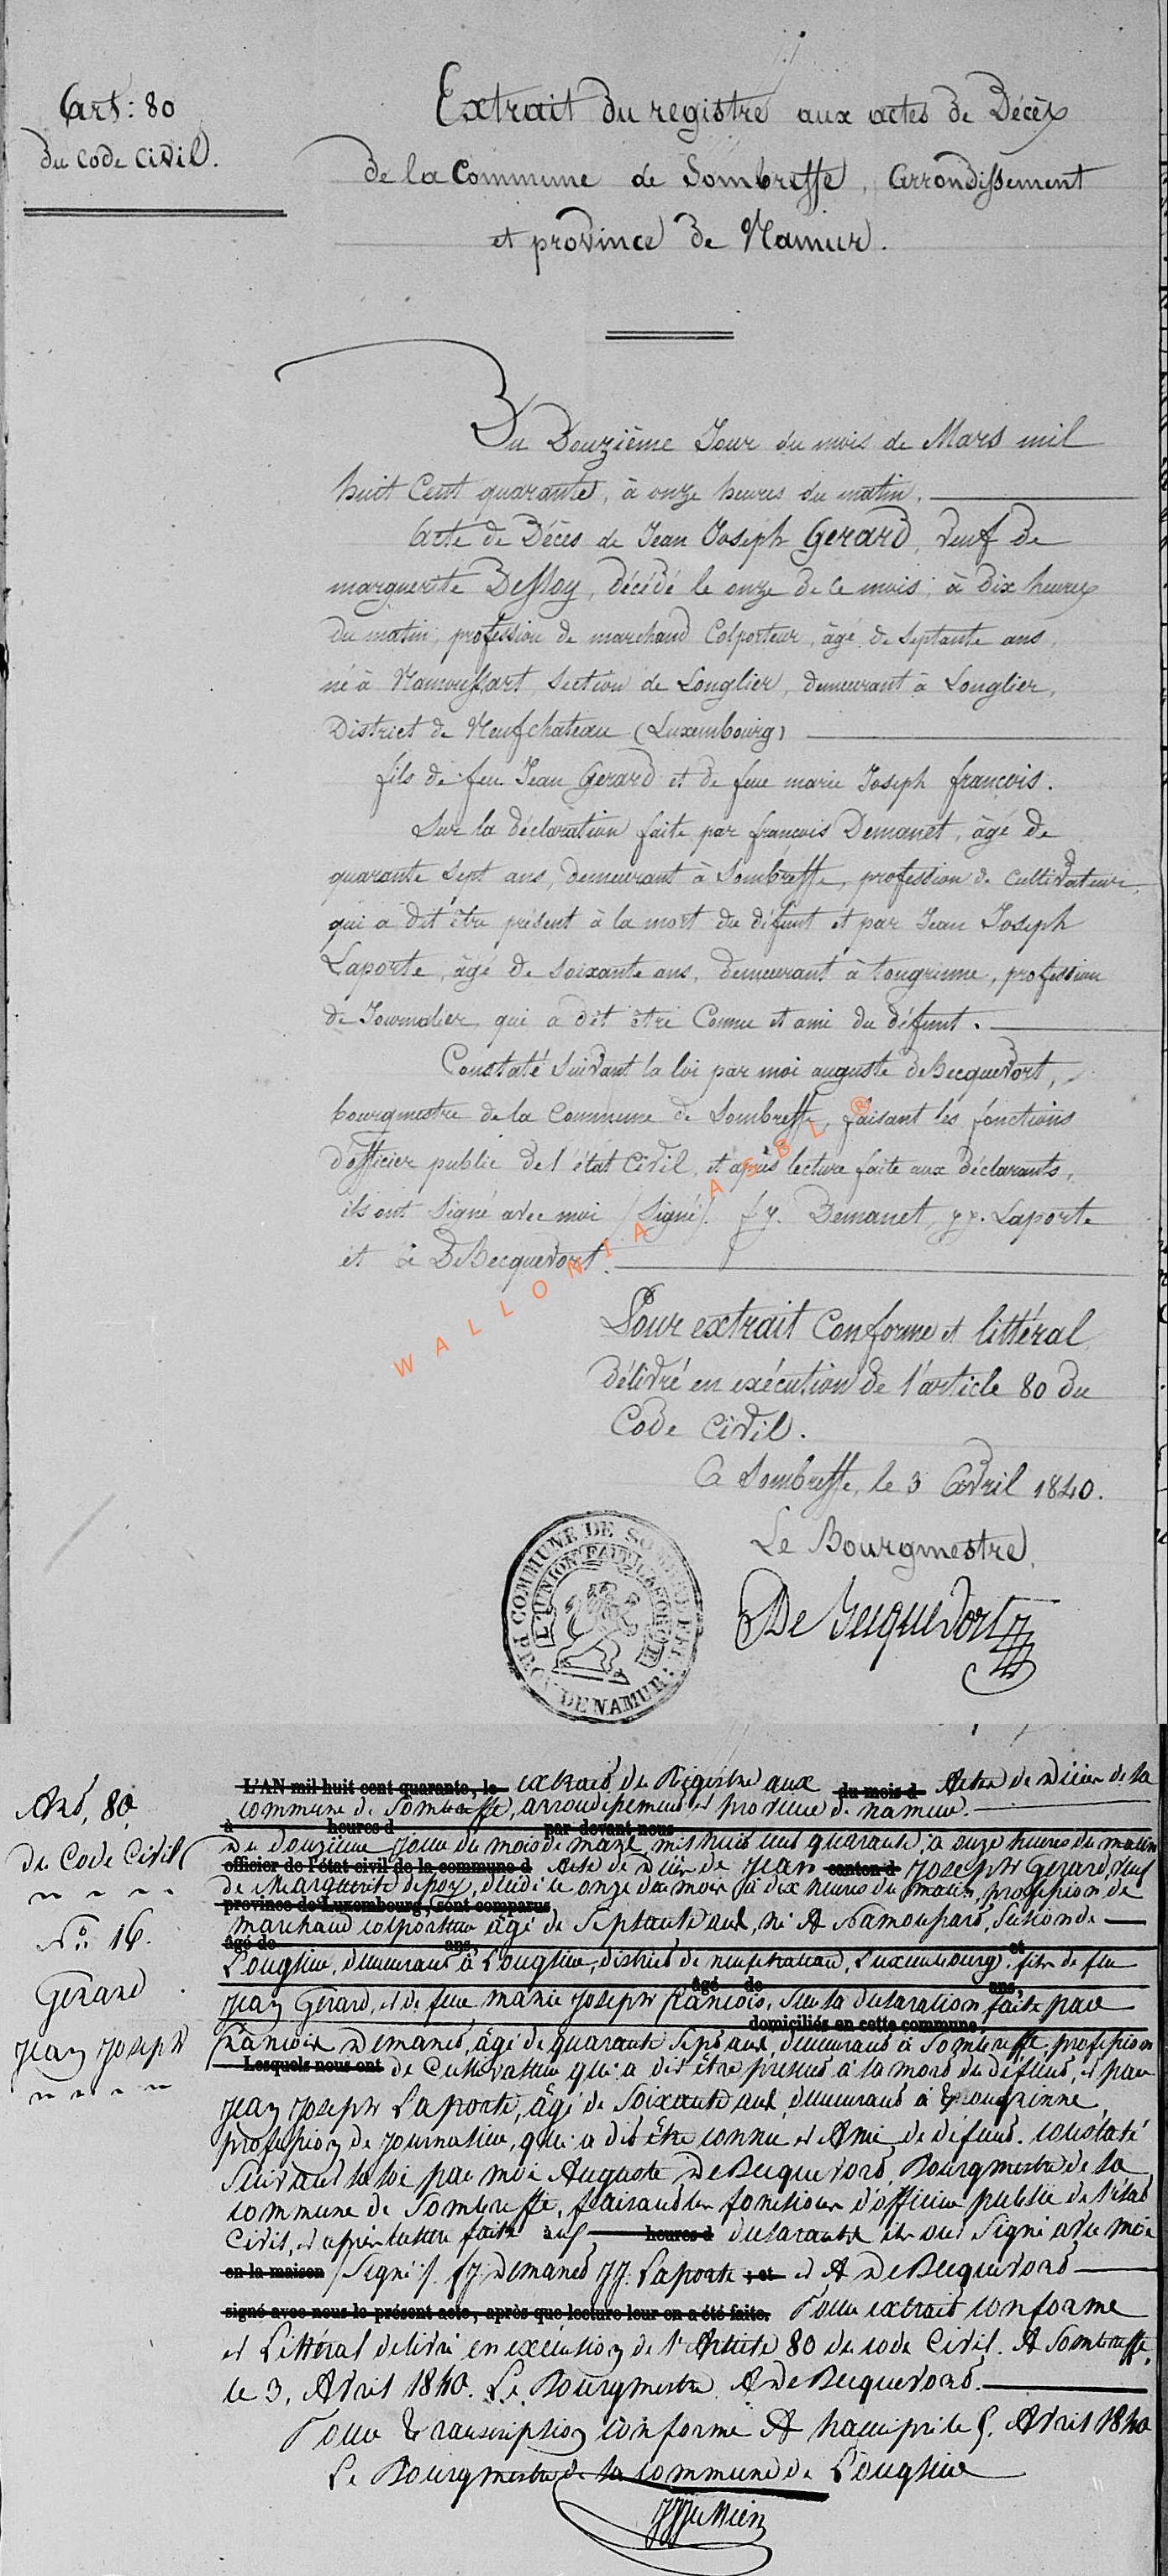 Art: 80
du Code Civil.
Extrait du registre aux actes de Décès
de la Commune de Sombreffe, Arrondissement
et province de Namur.
Du Douzième Jour du mois de Mars mil
huit Cent quarante, à onze heures du matin.
Acte de Décès de Jean Joseph Gerard, veuf de
marguerite Dessoy, décédé le onze de ce mois, à dix heures
du matin, profession de marchand Colporteur, âgé de septante ans,
né à Namoussart, Section de Longlier, demeurant à Longlier,
District de Neufchateau (Luxembourg)
fils de feu Jean Gerard et de feue marie Joseph françois.
Sur la déclaration faite par françois Demanet, âgé de
quarante sept ans, demeurant à Sombreffe, profession de Cultivateur,
qui a dit être présent à la mort du défunt et par Jean Joseph
Laporte, âgé de soixante ans, demeurant à tongrinne, profession
de Journalier qui a dit être Connu et ami du défunt.
Constaté suivant la loi par moi auguste deBecquevort,
bourgmestre de la Commune de Sombreffe, faisant les fonctions
d'officier public de l'état Civil, et après lecture faite aux déclarants,
ils ont signé avec moi (signé). f.j. Demanet, j.j. Laporte
et a DeBecquevort.
Pour extrait Conforme et littéral
délivré en exécution de l'article 80 du
Code Civil.
A Sombreffe, le 3 Avril 1840.
Le Bourgmestre,
De Becquevort
COMMUNE DE SOMBREFFE
L'UNION FAIT LA FORCE
PROV. DE NAMUR
WALLONIA ASBL ®
Art, 80,
du Code Civil
No. 16.
Gerard
Jean Joseph
L'AN mil huit cent quarante, le extrait du Régistre aux du mois d Actes de décès de la
commune de Sombreffe, arrondissement et province de namur.
à heures d par devant nous
Du douzième jour du mois de mars mil huit cent quarante, à onze heures du matin
officier de l'état civil de la commune d Acte de décès de Jean canton d Joseph Gerard, veuf
de Marguerite dessoy, décédé le onze du mois à dix heures du matin, profession de
province de Luxembourg, sont comparus
marchand colporteur âgé de Septante ans, né A Namoussart, Section de
âgé de ans, et
Longlier, demeurant à Longlier, district de neufchateau, Luxembourg, fils de feu
âgé de ans,
Jean Gérard, et de feue marie joseph francois, Sur la déclaration faite par
domiciliés en cette commune.
francois Demanet, âgé de quarante Sept ans, demeurant à Sombreffe, profession
Lesquels nous ont de Cultivateur qui a dit être présent à la mort du défunt, et par
jean joseph Laporte, âgé de Soixante ans, demeurant à tongrinne,
profession de journalier, qui a dit être connu et Ami de défunt. constaté
Suivant la loi par moi Auguste DeBecquevort, Bourgmestre de la
commune de Sombreffe, faisant les fonctions d'officier public de l'état
Civil, et après lecture faite aux heures d déclarants ils ont signé avec moi
en la maison (Signé). f.j. Demanet j.j. Laporte ; et et A DeBecquevort
signé avec nous le présent acte, après que lecture leur en a été faite. Pour extrait conforme
et Littéral délivré en exécution de l'Article 80 du code Civil. A Sombreffe,
le 3, Avril 1840. Le Bourgmestre A DeBecquevort.
Pour transcription conforme A le 5, Avril 1840
Le Bourgmestre de la commune de Longlier